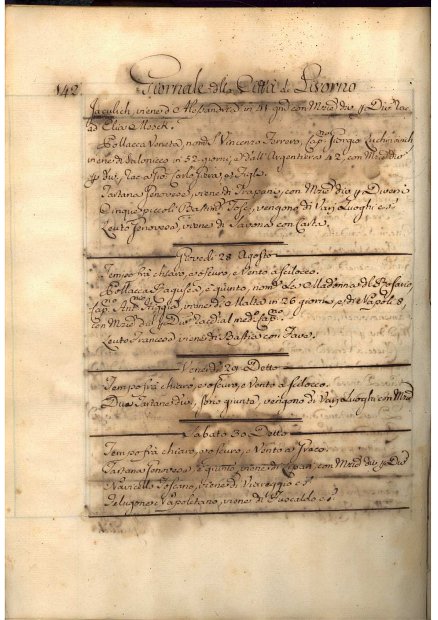 142 Giornale della Città di Livorno
Jaculich, viene d'Alessandria in 41 gni con Merci div. p Dio Isac
ed Elia Moseh.
Pollacca Veneta nom.ta Vincenzo Ferrero, Cap. Giorgio
viene di Salonicco in 52 giorni, e dall' Argentiera 42, con Merci div
Tartana Genovese, viene di Trapani, con Merci div p Diversi
Cinque piccoli Bastim. Tosc. vengono di Varj Luoghi e
Leuto Genovese, viene di Savona con Carta.
Giovedì 28 Agosto
Tempo frà chiaro, e oscuro, e Vento à scilocco.
Pollacca Ragusea è giunta, nom. la Madonna del Rosario
Cap. Ant. viene di Malta in 26 giorni, e di Napoli 8
con Merci div p
Leuto Francese viene di Bastia con Fave.
Venerdì 29 Detto
Tempo frà chiaro, e oscuro, e Vento à scilocco.
Due Tartane div. sono giunte, vengono di Varj Luoghi con Merci
Sabato 30 Detto
Tempo frà chiaro, e oscuro, e Vento à
Tartana Genovese è giunta, viene di Lipari, con Merci div p Div
Navicello Toscano, viene di Viareggio e
Felugone Napoletano, viene di Fuscaldo e